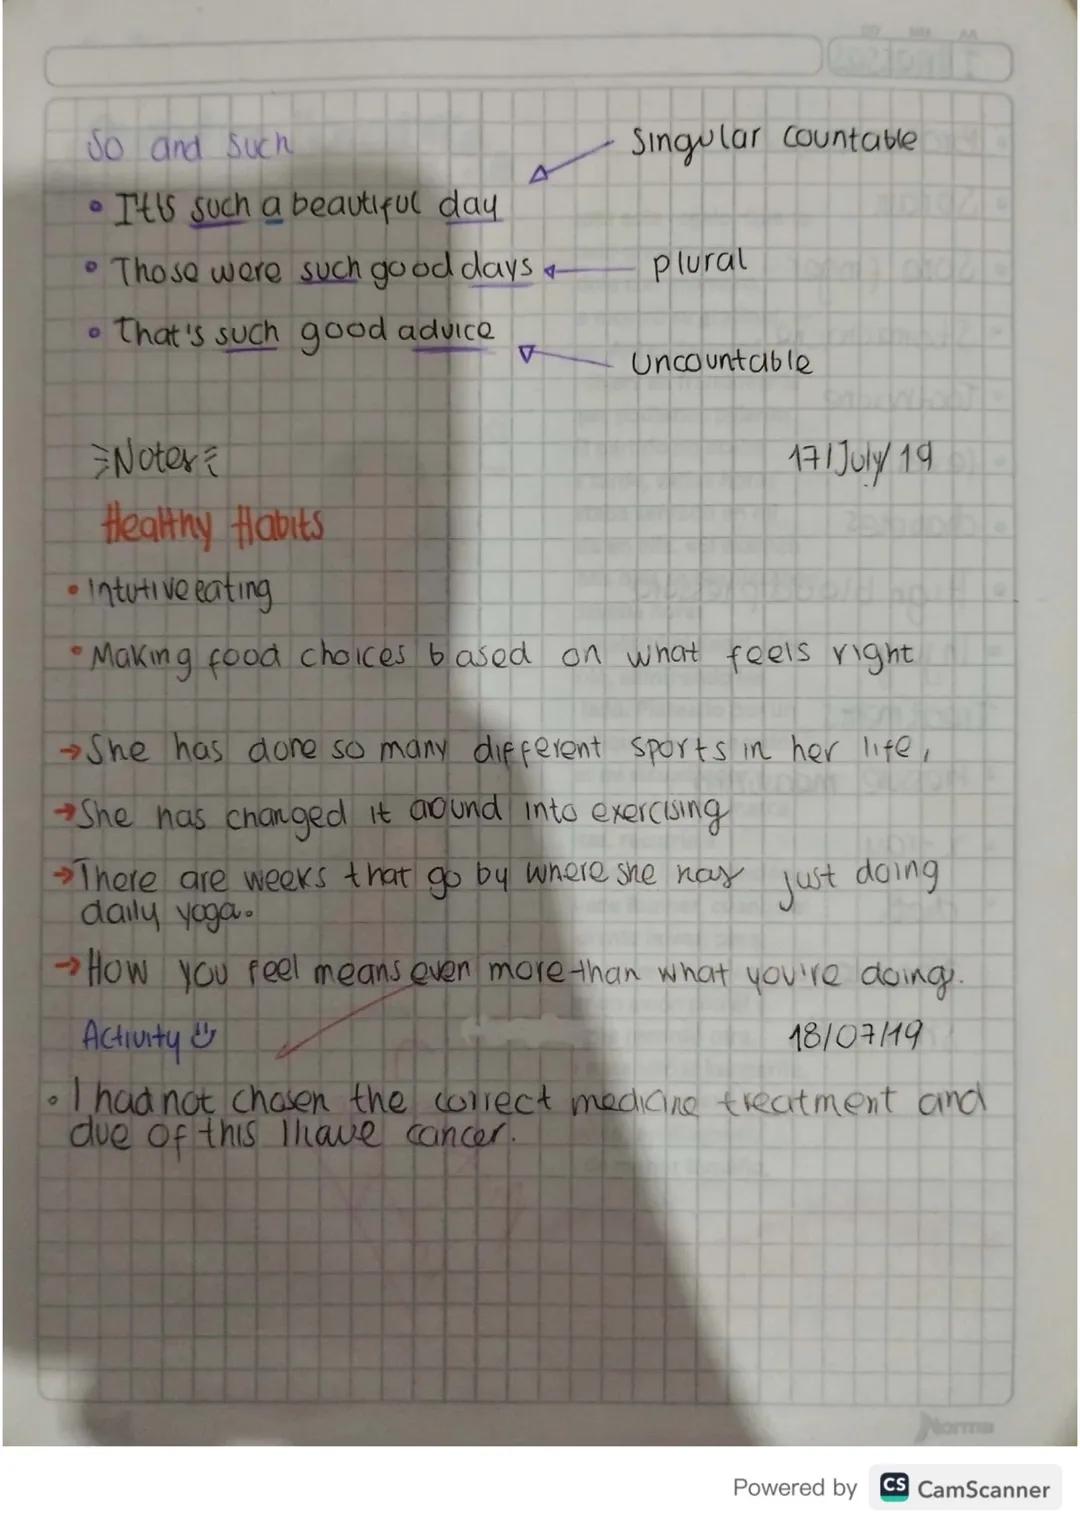 So and Such
Singular countable
• It's such a beautiful day
• Those were such good days
plural
• That's such good advice
Uncountable
Notes
17/July/19
Healthy Habits
• Intutive eating
• Making food choices based on what feels right
→ She has done so many different sports in her life,
→ She has changed it around into exercising
→ There are weeks that go by where she has just doing
daily yoga.
→ How you feel means even more than what you're doing.
Activity
18/07/19
• I had not chosen the correct medicine treatment and
due of this I have cancer.
Norma
Powered by CS CamScanner